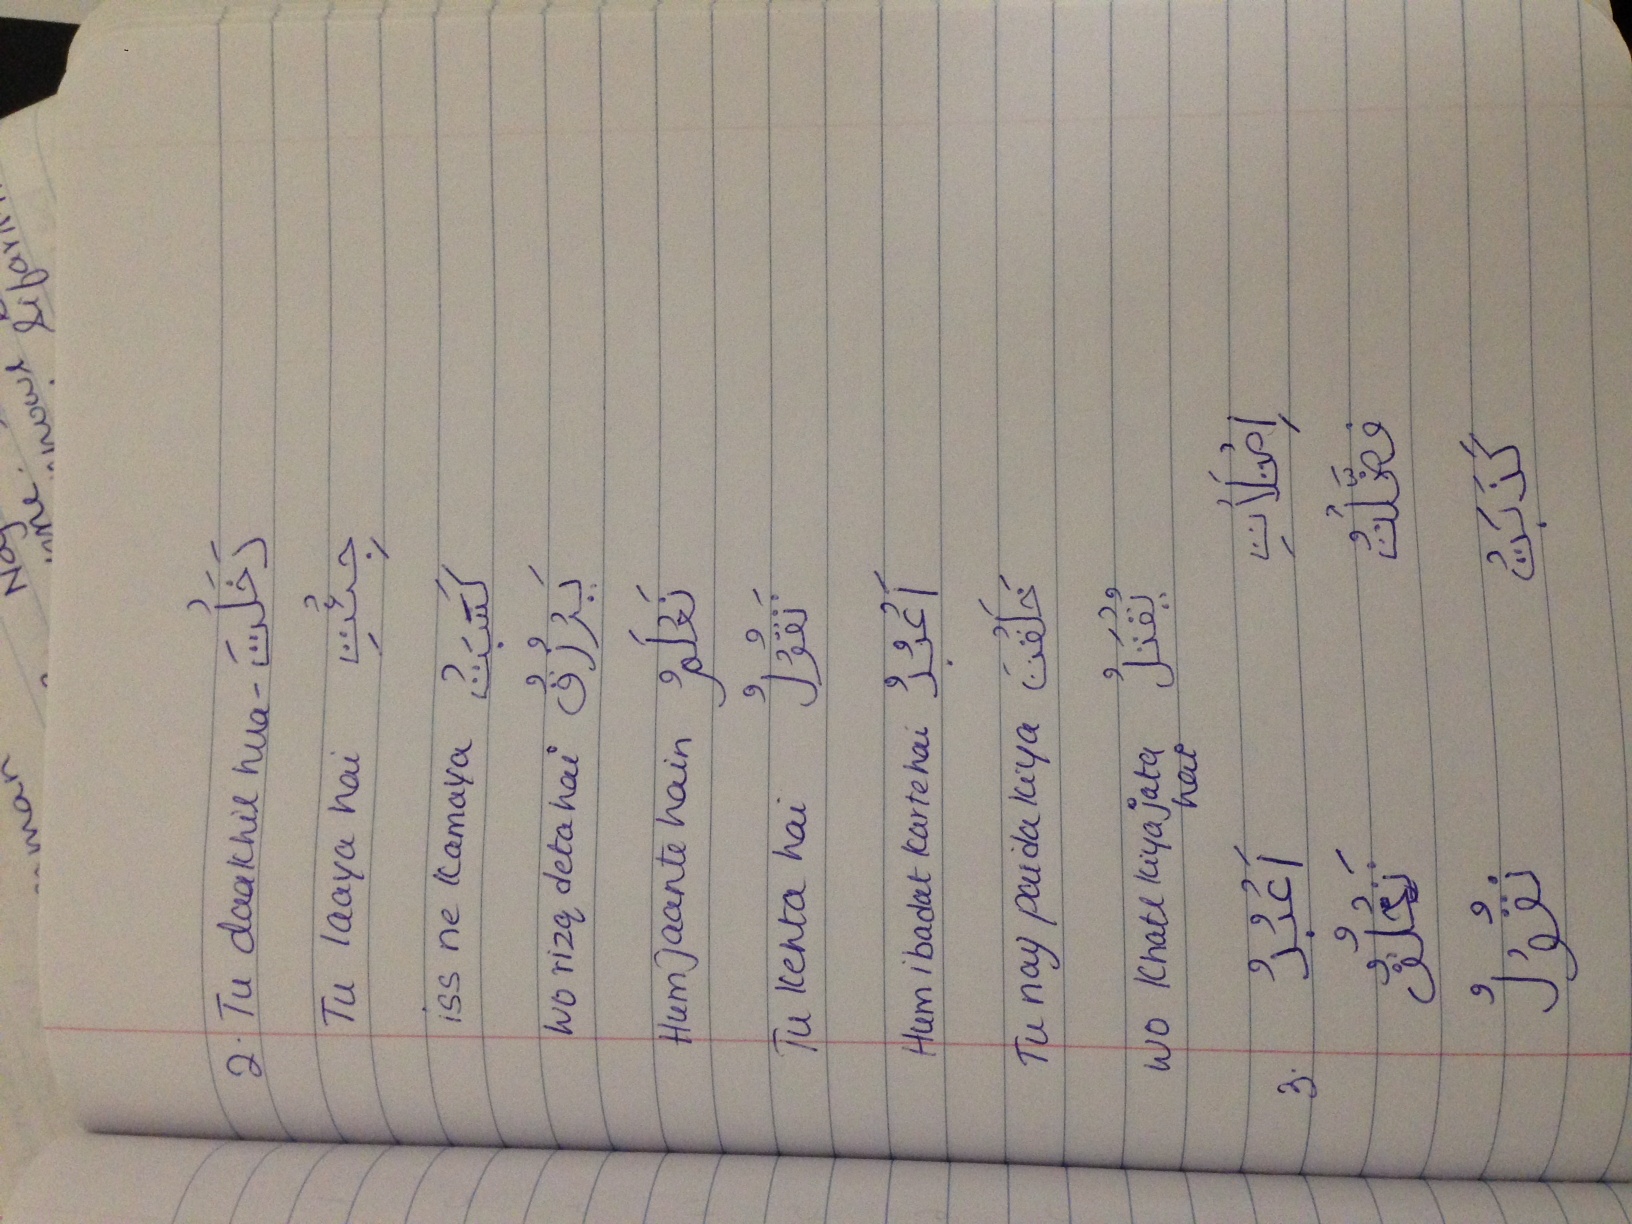 2. Tu daakhil hua - دَخَلْتَ
Tu laaya hai جِئْتِ
iss ne kamaya كَسَبَتْ
wo rizq deta hai يَرْزُقُ
Hum jaante hain نَعْلَمُ
Tu kehta hai تَقُوْلُ
Hum ibadat karte hai أَعْبُدُ
Tu nay paida kiya خَلَقْتَ
wo khatl kiya jata يُقْتَلُ
hai
3. أَعْبُدُ
تَقُوْلُ كَذَبَتْ